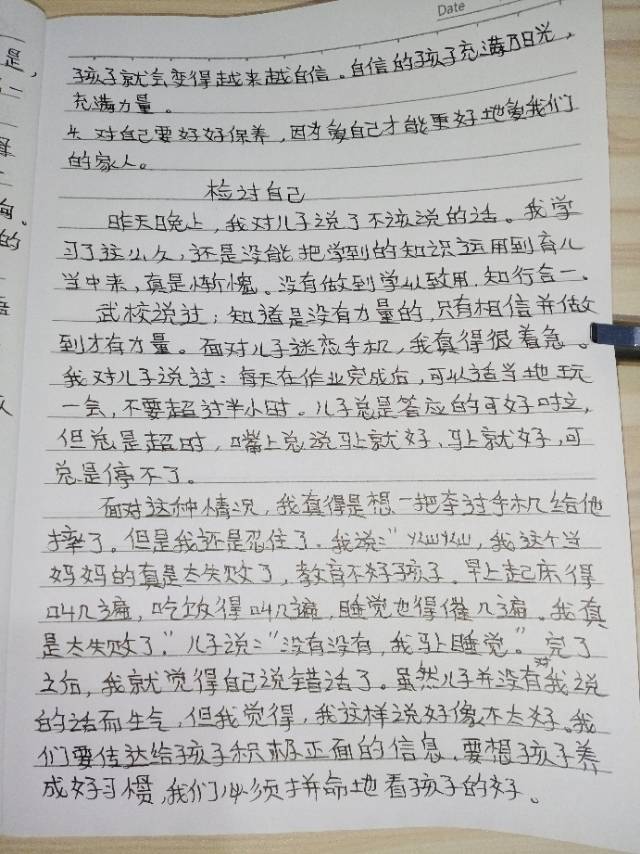 Date
孩子就会变得越来越自信。自信的孩子充满了阳光,
充满力量。
4. 对自己要好好保养,因为爱自己才能更好地爱我们
的家人。
检讨自己
昨天晚上,我对儿子说了不该说的话。我学
习了这么久,还是没能把学到的知识运用到育儿
当中来,真是惭愧。没有做到学以致用,知行合一。
武校说过:知道是没有力量的,只有相信并做
到才有力量。面对儿子迷恋手机,我真得很着急。
我对儿子说过:每天在作业完成后,可以适当地玩
一会,不要超过半小时。儿子总是答应的可好时,
但总是超时,嘴上总说马上就好、马上就好,可
总是停不了。
面对这种情况,我真得是想一把夺过手机给他
摔了。但是我还是忍住了。我说:",我这个当
妈妈的真是太失败了,教育不好孩子。早上起床得
叫几遍,吃饭得叫几遍,睡觉也得催几遍。我真
是太失败了。"儿子说:"没有没有,我马上睡觉。"完了
之后,我就觉得自己说错话了。虽然儿子并没有对我说
的话而生气,但我觉得,我这样说好像不太好。我
们要传达给孩子积极正面的信息,要想孩子养
成好习惯,我们必须拼命地看孩子的好。
是,
的